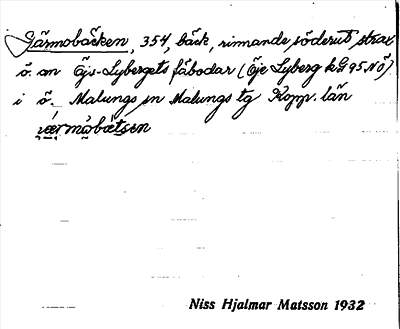 Järmobäcken, 354, bäck, rinnande söderut strax
ö. om Öje-Lybergets fäbodar (Öje Lyberg kG 95 NÖ)
i ö. Malungs sn Malungs tg Kopp. län
Niss Hjalmar Matsson 1932